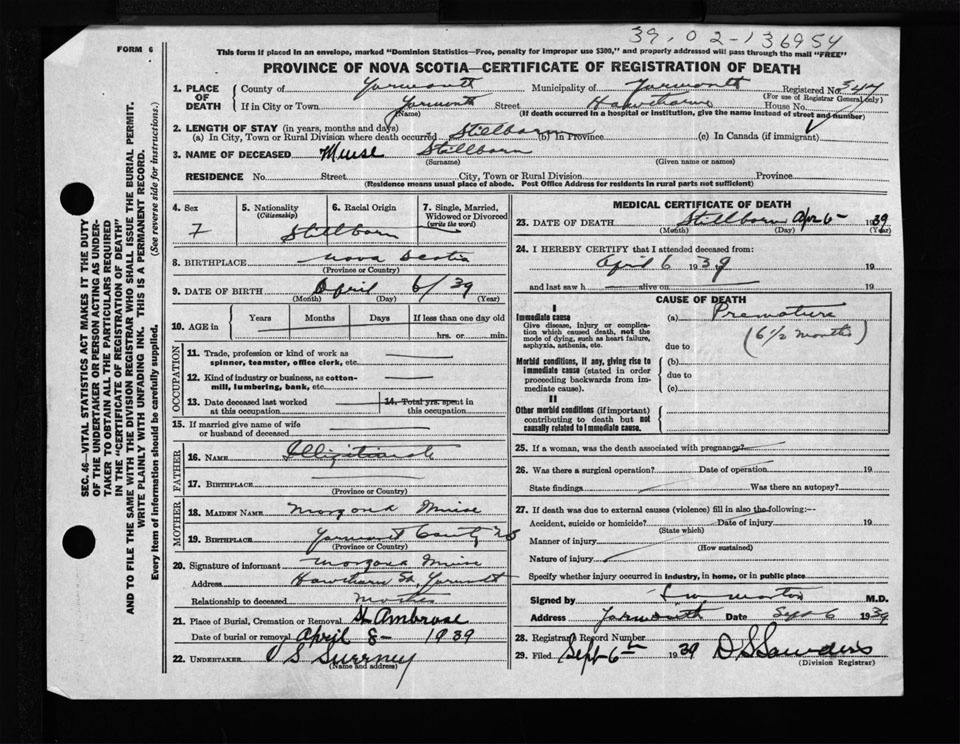 39.02-136954
FORM 6
This form if placed in an envelope, marked "Dominion Statistics—Free, penalty for improper use $300," and properly addressed will pass through the mail "FREE"
PROVINCE OF NOVA SCOTIA—CERTIFICATE OF REGISTRATION OF DEATH
1. PLACE OF DEATH
County of Yarmouth Municipality of Yarmouth Registered No. 347
(For use of Registrar General only)
If in City or Town Yarmouth Street Hawthorne House No.
(Name) (If death occurred in a hospital or institution, give the name instead of street and number)
2. LENGTH OF STAY (in years, months and days)
(a) In City, Town or Rural Division where death occurred Stillborn (b) In Province (c) In Canada (if immigrant)
3. NAME OF DECEASED Muise Stillborn
(Surname) (Given name or names)
RESIDENCE No. Street City, Town or Rural Division Province
(Residence means usual place of abode. Post Office Address for residents in rural parts not sufficient)
4. Sex 5. Nationality (Citizenship) 6. Racial Origin 7. Single, Married, Widowed or Divorced (write the word)
Stillborn
8. BIRTHPLACE Nova Scotia
(Province or Country)
9. DATE OF BIRTH April 6/39
(Month) (Day) (Year)
10. AGE in Years Months Days If less than one day old
hrs. or min.
OCCUPATION
11. Trade, profession or kind of work as spinner, teamster, office clerk, etc.
12. Kind of industry or business, as cotton-mill, lumbering, bank, etc.
13. Date deceased last worked at this occupation 14. Total yrs. spent in this occupation
15. If married give name of wife or husband of deceased
FATHER
16. NAME
17. BIRTHPLACE
(Province or Country)
MOTHER
18. MAIDEN NAME Muise
19. BIRTHPLACE Yarmouth County NS
(Province or Country)
20. Signature of informant Muise
Address Hawthorn St, Yarmouth
Relationship to deceased Mother
21. Place of Burial, Cremation or Removal St Ambrose
Date of burial or removal April 8 - 1939
22. UNDERTAKER V S Sweeney
(Name and address)
MEDICAL CERTIFICATE OF DEATH
23. DATE OF DEATH Stillborn Apr 6 - 1939
(Month) (Day) (Year)
24. I HEREBY CERTIFY that I attended deceased from:
April 6 1939 19
and last saw h alive on 19
CAUSE OF DEATH
I
Immediate cause
Give disease, injury or complication which caused death, not the mode of dying, such as heart failure, asphyxia, asthenia, etc.
(a) Premature
(6 1/2 months)
due to
Morbid conditions, if any, giving rise to immediate cause (stated in order proceeding backwards from immediate cause).
(b)
due to
(c)
II
Other morbid conditions (if important) contributing to death but not causally related to immediate cause.
25. If a woman, was the death associated with pregnancy?
26. Was there a surgical operation? Date of operation 19
State findings Was there an autopsy?
27. If death was due to external causes (violence) fill in also the following:--
Accident, suicide or homicide? Date of injury 19
(State which)
Manner of injury
(How sustained)
Nature of injury
Specify whether injury occurred in industry, in home, or in public place
Signed by M.D.
Address Yarmouth Date Sept 6 1939
28. Registrar's Record Number
29. Filed Sept 6th 1939 D S Saunders
(Division Registrar)
SEC. 46—VITAL STATISTICS ACT MAKES IT THE DUTY
OF THE UNDERTAKER OR PERSON ACTING AS UNDER-
TAKER TO OBTAIN ALL THE PARTICULARS REQUIRED
IN THE "CERTIFICATE OF REGISTRATION OF DEATH"
AND TO FILE THE SAME WITH THE DIVISION REGISTRAR WHO SHALL ISSUE THE BURIAL PERMIT.
WRITE PLAINLY WITH UNFADING INK. THIS IS A PERMANENT RECORD.
Every item of information should be carefully supplied. (See reverse side for instructions.)